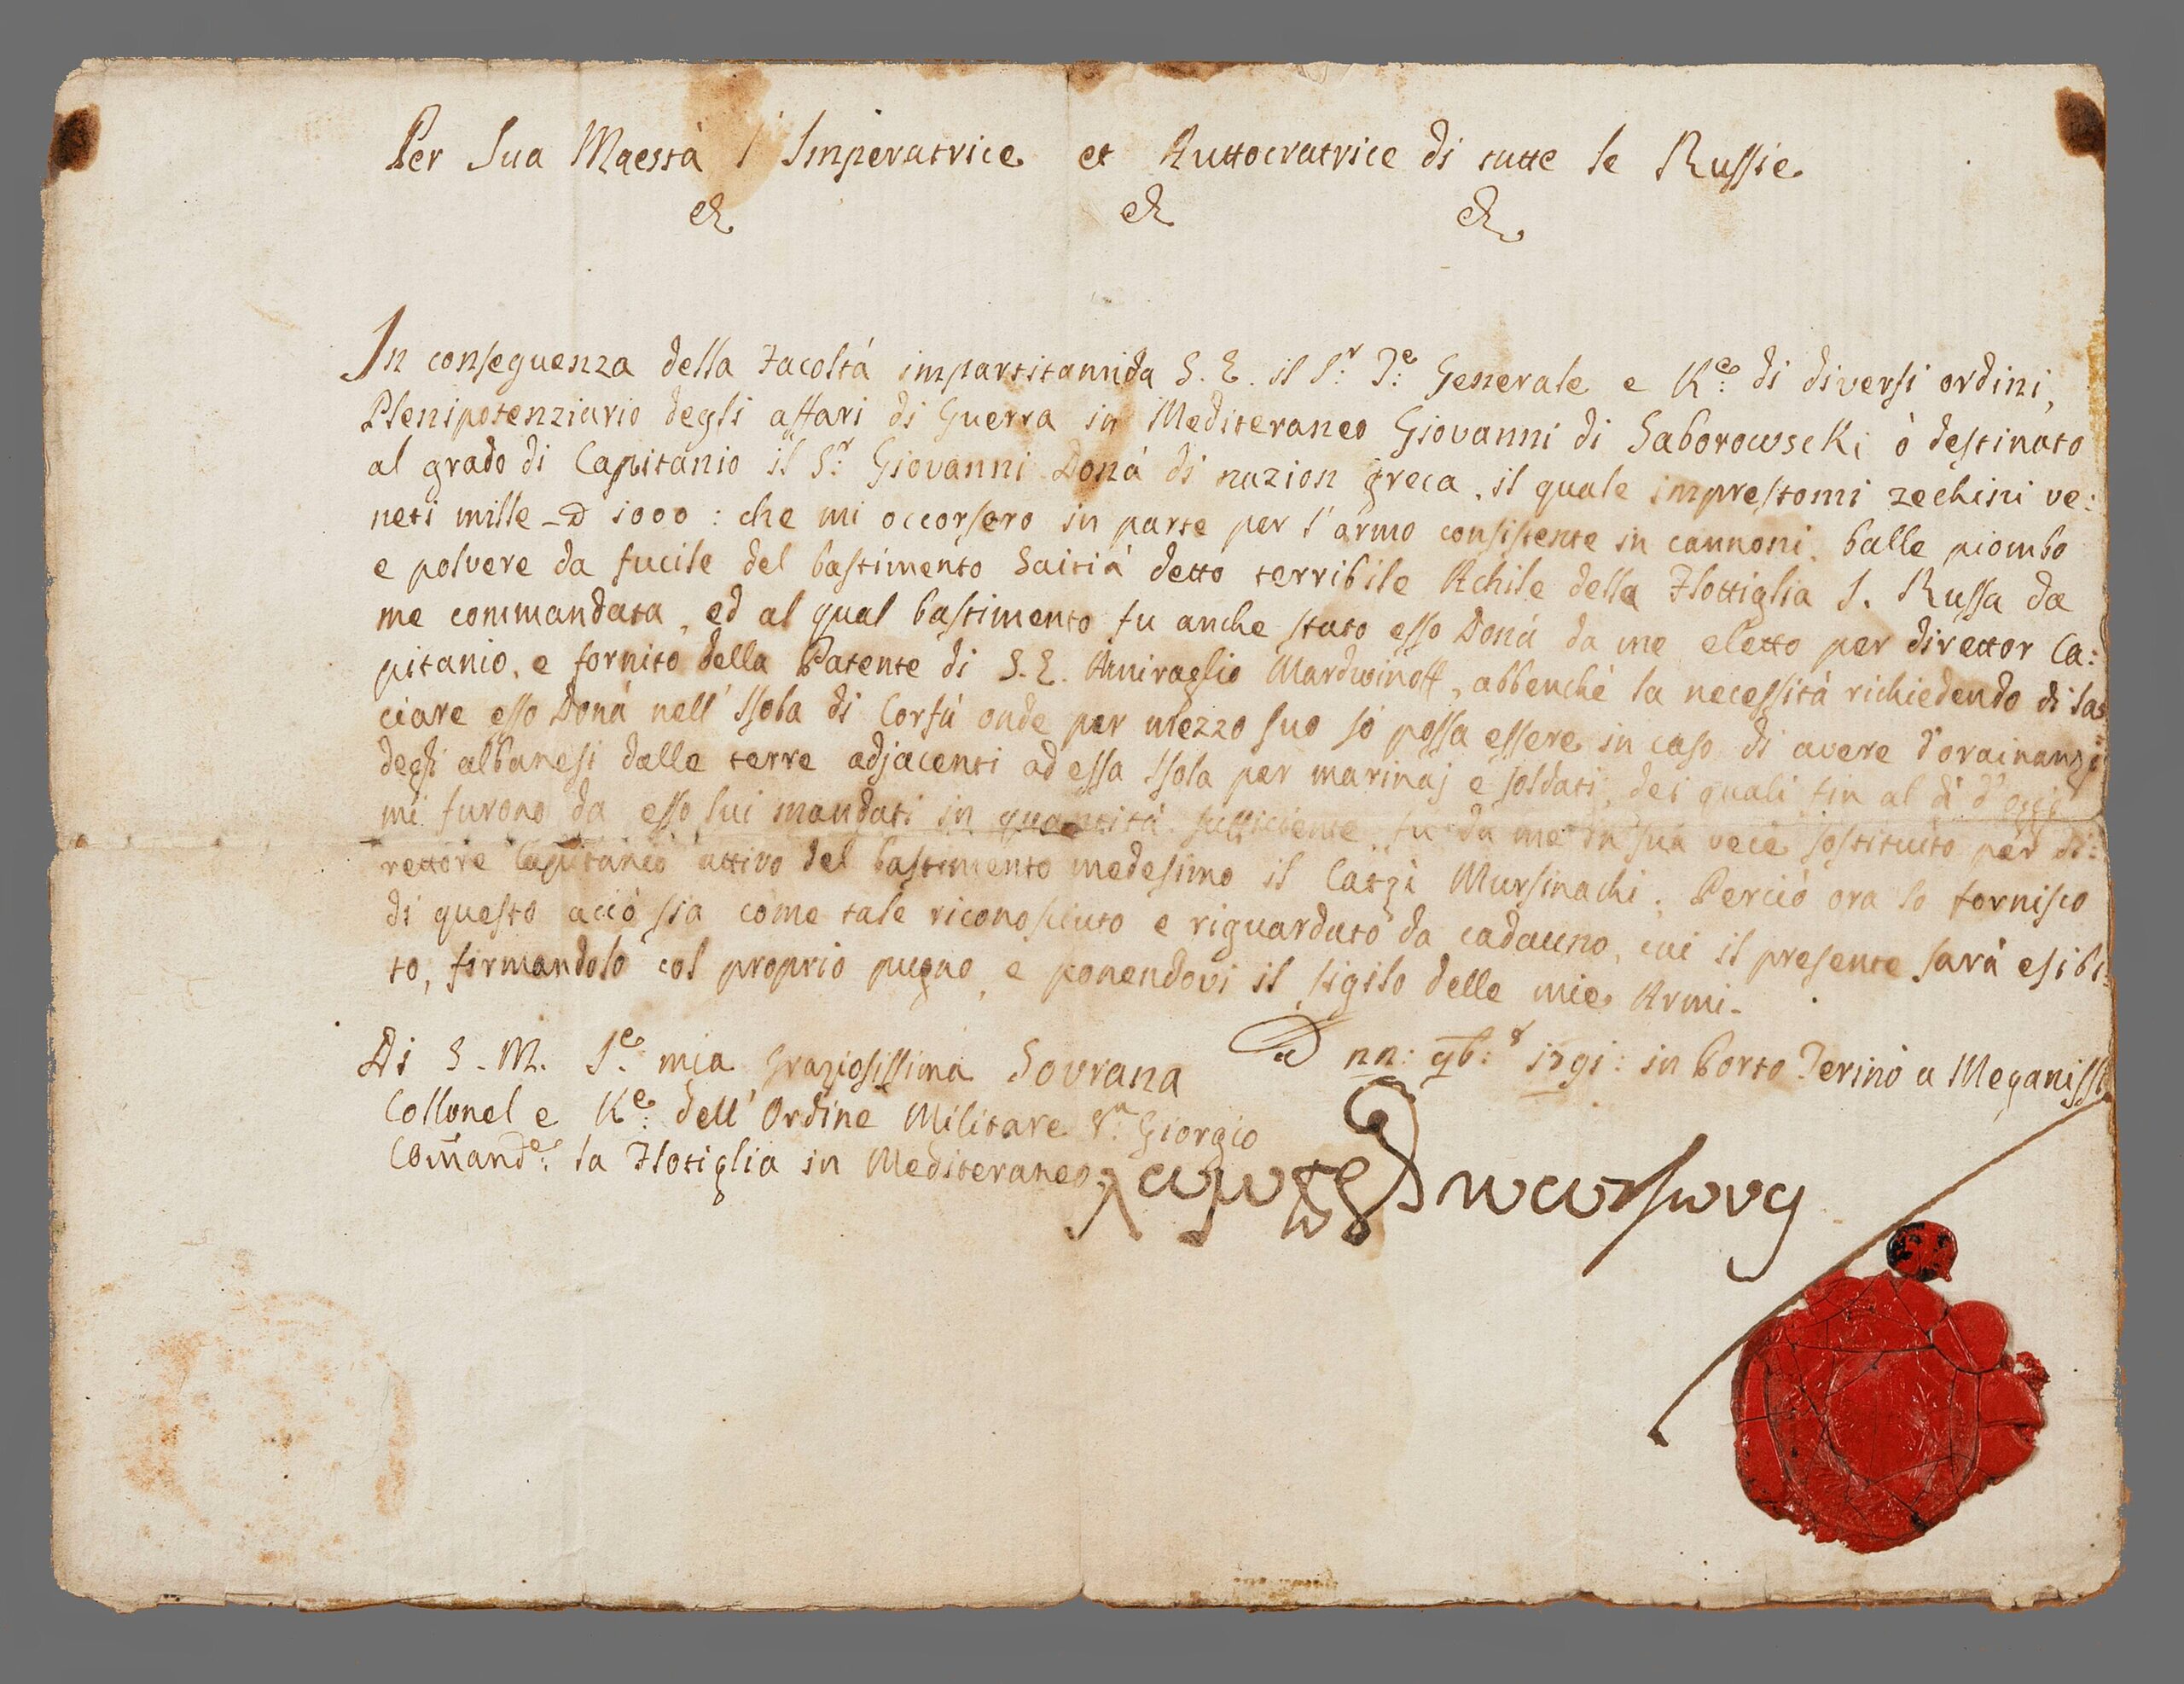 Per Sua Maestà l'Imperatrice et Auttocratrice di tutte le Russie
& & &
In conseguenza della Facoltà impartitami da S. E. il S.r T.e Generale e K.r di diversi ordini,
Plenipotenziario degli affari di Guerra in Mediteraneo Giovanni di Saborowscki ò destinato
al grado di Capitanio il S.r Giovanni Donà di nazion greca, il quale imprestomi zechini ve:
neti mille 1000: che mi occorsero in parte per l'armo consistente in cannoni, balle piombo
e polvere da fucile del bastimento Saitià detto terribile Achile della Flottiglia I. Russa da
me commandata, ed al qual bastimento fu anche stato esso Donà da me eletto per direttor Ca:
pitanio, e fornito della Patente di S. E. Amiraglio Mardwinoff, abbenchè la necessità richiedendo di las
ciare esso Donà nell'Isola di Corfù onde per mezzo suo io possa essere in caso di avere d'orainanzi
degli albanesi dalle terre adjacenti ad essa Isola per marinaj e soldati, dei quali fin al dì d'oggi
mi furono da esso lui mandati in quantità sufficiente, fu da me in sua vece sostituito per di:
rettore Capitanio attivo del bastimento medesimo il Catzì Mursinachi; Perciò ora lo fornisco
di questo acciò sia come tale riconosciuto e riguardato da cadauno, cui il presente sarà esibi:
to, firmandolo col proprio pugno, e ponendovi il sigilo delle mie Armi.
Di S. M. I.e mia graziosissima Sovrana
nn: 9b:r 1791: in Porto a Meganissi
Collonel e K.e: dell'Ordine Militare S.n Giorgio
Comand.e: la Flotiglia in Mediteraneo
λάμπρος